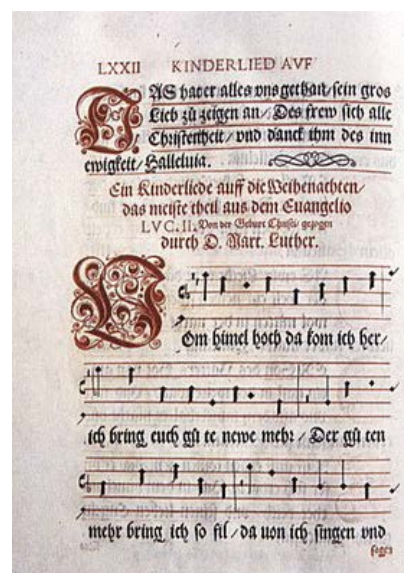 LXXII KINDERLIED AVF
DAS hat er alles vns gethan/sein gros
Lieb zů zeigen an/ Des frew sich alle
Christenheit/ vnd danck ihm des inn
ewigkeit/ Halleluia.
Ein Kinderliede auff die Weihenachten/
das meiste theil aus dem Euangelio
LVC. II. Von der Geburt Christi/ gezogen
durch D. Mart. Luther.
VOm himel hoch da kom ich her/
ich bring euch gů te newe mehr/ Der gů ten
mehr bring ich so fil/ da uon ich singen vnd
sagen